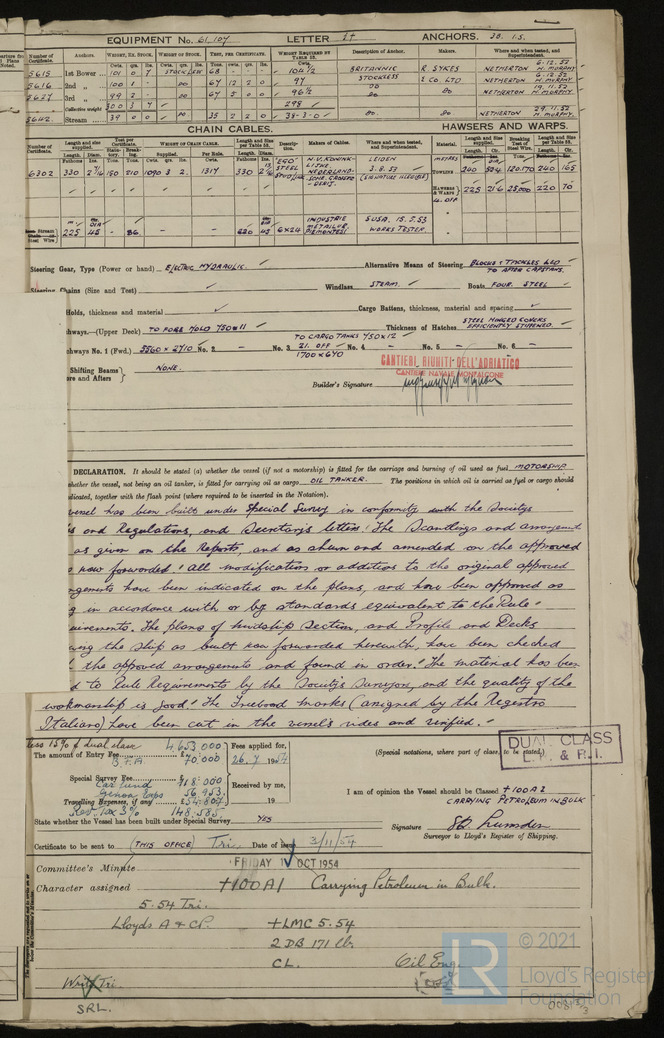 EQUIPMENT No. 61,107 LETTER ANCHORS.
Number of Certificate. Anchors. WEIGHT, EX. STOCK. WEIGHT OF STOCK. TEST, PER CERTIFICATE. WEIGHT REQUIRED BY TABLE 53. Description of Anchor. Makers. Where and when tested, and Superintendent.
Cwts. qrs. lbs. Cwts. qrs. lbs. Tons. cwts. qrs. lbs. Cwts.
5615 1st Bower 101 0 7 STOCKLESS 68 - - - 104½ BRITANNIC R. SYKES NETHERTON 6.12.52 H. MURPHY
5616 2nd „ 100 1 - DO 67 12 2 0 97 STOCKLESS & CO. LTD NETHERTON 6.12.52 H. MURPHY
5627 3rd „ 99 2 - DO 67 5 0 0 96½ DO DO NETHERTON 19.11.52 H. MURPHY
Collective weight 300 3 7 298
5642 Stream 39 0 0 DO 35 2 2 0 38-3-0 DO. DO. NETHERTON 29.11.52 H. MURPHY.
CHAIN CABLES. HAWSERS AND WARPS.
Number of Certificate. Length and size supplied. Test per Certificate. WEIGHT OF CHAIN CABLE. Length and size per Table 53. Description. Makers of Cables. Where and when tested, and Superintendent. Material. Length and size supplied. Breaking Test of Steel Wire. Length and size per Table 53.
6302 330 2 7/16 150 210 1090 3 2 1317 330 STEEL STUD LINK N.V. KONINKLIJKE NEDERLAND. LEIDEN 3.8.53 (SIGNATURE ILLEGIBLE) TOWLINE 240 120.170 240 165
HAWSERS & WARPS 225 25,000 220 70
4. OFF
Stream Chain or Steel Wire 225 45 - 86 - - 45 6x24 INDUSTRIE METALLUR. PIEMONTESI SUSA. 15.5.53 WORKS TESTER.
Steering Gear, Type (Power or hand) ELECTRIC HYDRAULIC. Alternative Means of Steering BLOCKS & TACKLES LED TO AFTER CAPSTANS.
Steering Chains (Size and Test) Windlass STEAM. Boats FOUR STEEL
Holds, thickness and material Cargo Battens, thickness, material and spacing
hways.—(Upper Deck) TO FORE HOLD 750 x 11 TO CARGO TANKS 750 x 12 Thickness of Hatches STEEL HINGED COVERS EFFICIENTLY STIFFENED.
hways No. 1 (Fwd.) 3560 x 2710 No. 2 - No. 3 21. OFF 1700 x 640 No. 4 - No. 5 - No. 6 -
Shifting Beams ers and Afters NONE.
CANTIERI RIUNITI DELL'ADRIATICO
CANTIERE NAVALE MONFALCONE
Builder's Signature
DECLARATION. It should be stated (a) whether the vessel (if not a motorship) is fitted for the carriage and burning of oil used as fuel MOTORSHIP
whether the vessel, not being an oil tanker, is fitted for carrying oil as cargo OIL TANKER. The positions in which oil is carried as fuel or cargo should
dicated, together with the flash point (where required to be inserted in the Notation).
vessel has been built under Special Survey in conformity with the Society's
s and Regulations, and Secretary's letters. The Scantlings and arrangement
as given on the Reports, and as shown and amended on the approved
now forwarded. All modifications or additions to the original approved
ngements have been indicated on the plans, and have been approved as
g in accordance with or by standards equivalent to the Rule
uirements. The plans of Midship Section, and Profile and Decks
wing the ship as built now forwarded herewith, have been checked
the approved arrangements and found in order. The material has been
d to Rule Requirements by the Society's Surveyors, and the quality of the
workmanship is good. The Freeboard marks (assigned by the Registro
Italiano) have been cut in the vessel's sides and verified.
less 15% of dual class 4,653,000
The amount of Entry Fee 70,000 Fees applied for, 26.7 1954 (Special notations, where part of class, to be stated.)
DUAL CLASS
L.R. & R.I.
Special Survey Fee 918,000
Car fund
Genoa Exps 56,953 Received by me, I am of opinion the Vessel should be Classed +100A1
Travelling Expenses, if any 254,807 19 CARRYING PETROLEUM IN BULK
Rev. Tax 3% 148,585
State whether the Vessel has been built under Special Survey YES
Signature Lumsden
Surveyor to Lloyd's Register of Shipping.
Certificate to be sent to (THIS OFFICE) Tri. Date of issue 3/11/54
Committee's Minute FRIDAY 1 OCT 1954
Character assigned +100A1 Carrying Petroleum in Bulk.
5.54 Tri.
Lloyds A & CP. +LMC 5.54
2 DB 171 lb.
CL. Oil Eng.
Write Tri.
SRL.
LR
© 2021
Lloyd's Register
Foundation